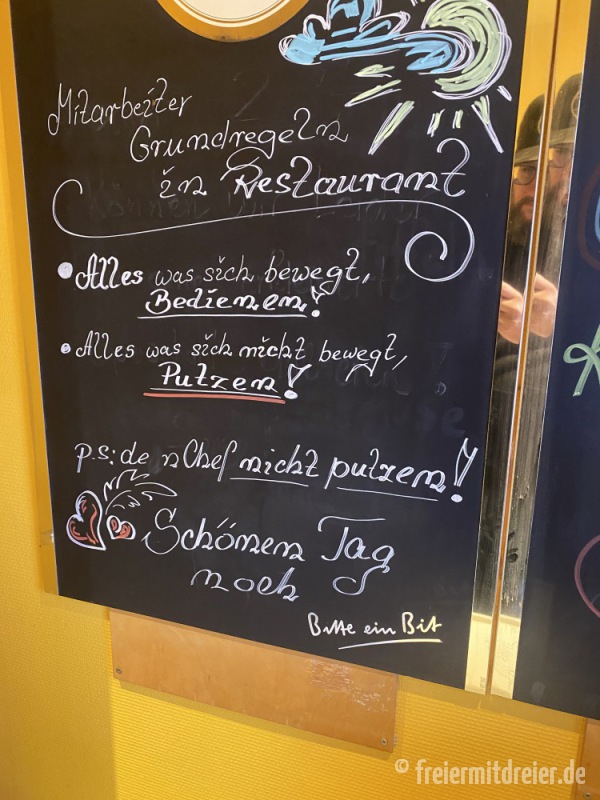 Mitarbeiter
Grundregeln
in Restaurant
• Alles was sich bewegt,
Bedienen!
• Alles was sich nicht bewegt,
Putzen!
p.s: de n Chef nicht putzen!
Schönen Tag
noch
Bitte ein Bit
© freiermitdreier.de